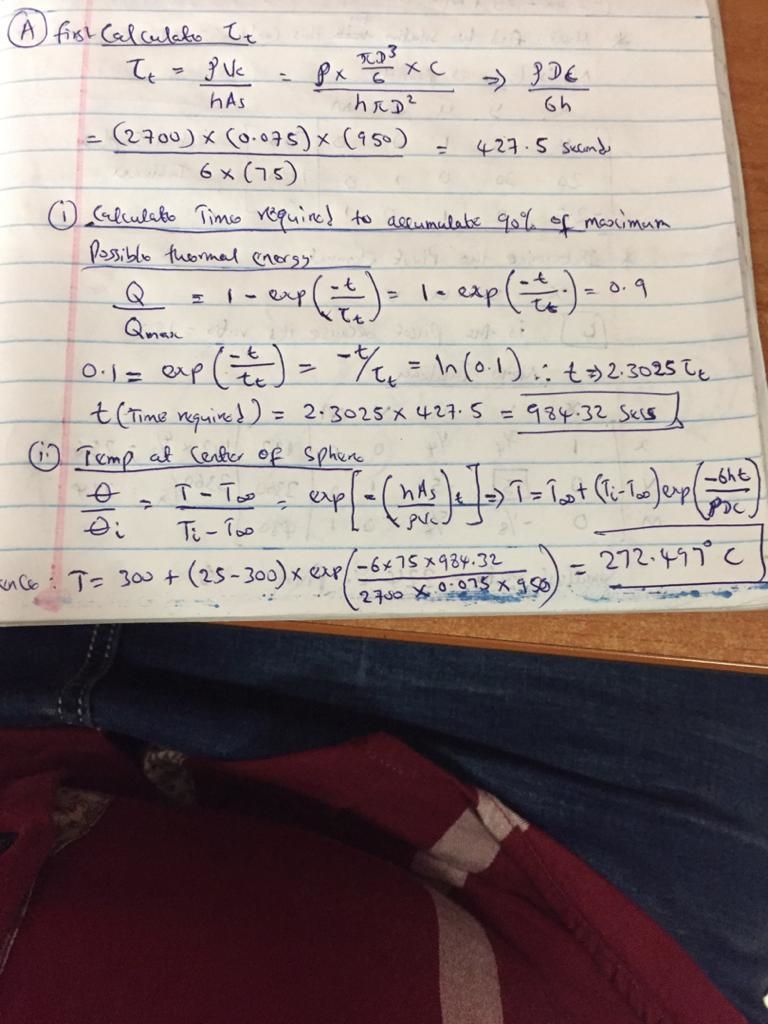 (A) first Calculate τt
τt = ρVc / hAs = ρ × πD³/6 × C / hπD² ⇒ ρDC / 6h
= (2700) × (0.075) × (950) / 6 × (75) = 427.5 seconds
(i) Calculate Time required to accumulate 90% of maximum
Possible thermal energy
Q / Qmax = 1 - exp(-t / τt) = 1 - exp(-t / τt) = 0.9
0.1 = exp(-t / τt) = -t/τt = ln(0.1) ∴ t ⇒ 2.3025 τt
t (Time required) = 2.3025 × 427.5 = 984.32 Secs
(ii) Temp at Center of Sphere
θ / θi = T - T∞ / Ti - T∞ = exp[-(hAs / ρVc) t] ⇒ T = T∞ + (Ti - T∞) exp(-6ht / ρDC)
ence: T = 300 + (25 - 300) × exp(-6 × 75 × 984.32 / 2700 × 0.075 × 950) = 272.497° C